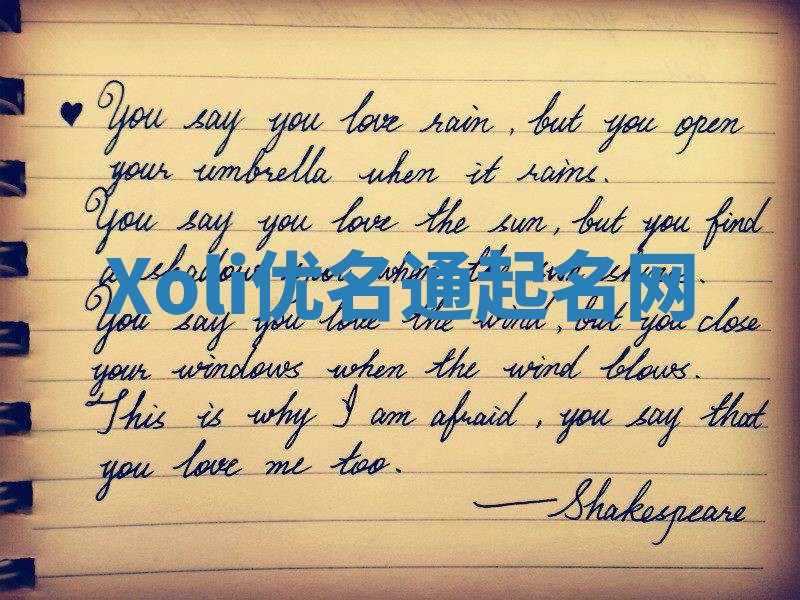 You say you love rain, but you open
your umbrella when it rains.
You say you love the sun, but you find
a shadow spot when the sun shines.
Xoli优名通起名网
You say you love the wind, but you close
your windows when the wind blows.
This is why I am afraid, you say that
you love me too.
—Shakespeare